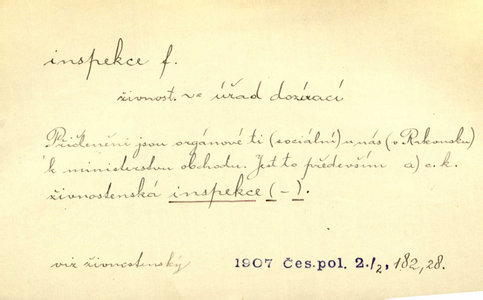 inspekce f.
živnost. v. úřad dozírací
Přiděleni jsou orgánové ti (sociální) u nás (v Rakousku)
k ministerstvu obchodu. Jest to především a) c. k.
živnostenská inspekce (-).
viz živnostenský 1907 Čes. pol. 2./2, 182, 28.